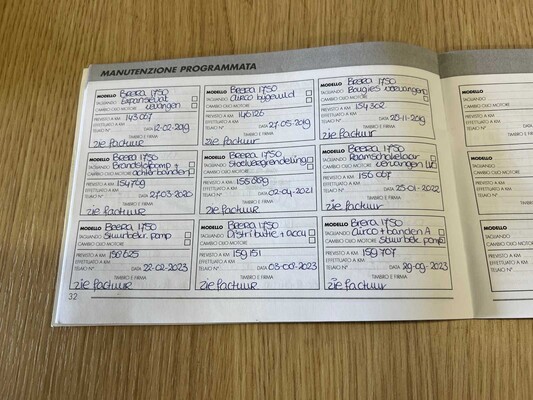 MANUTENZIONE PROGRAMMATA
MODELLO Brera 1750
TAGLIANDO Expansievat
CAMBIO OLIO MOTORE vervangen
PREVISTO A KM 143.067
EFFETTUATO A KM
TELAIO N° DATA 12-02-2019
TIMBRO E FIRMA
zie factuur
MODELLO Brera 1750
TAGLIANDO airco bijgevuld
CAMBIO OLIO MOTORE
PREVISTO A KM 146126
EFFETTUATO A KM
TELAIO N° DATA 27-05-2019
TIMBRO E FIRMA
zie factuur
MODELLO Brera 1750
TAGLIANDO Bougies vervangen
CAMBIO OLIO MOTORE
PREVISTO A KM 154302
EFFETTUATO A KM
TELAIO N° DATA 25-11-2019
TIMBRO E FIRMA
zie factuur
MODELLO Brera 1750
TAGLIANDO Brandstofpomp +
CAMBIO OLIO MOTORE achterbanden
PREVISTO A KM 154769
EFFETTUATO A KM
TELAIO N° DATA 27-03-2020
TIMBRO E FIRMA
zie factuur
MODELLO Brera 1750
TAGLIANDO
CAMBIO OLIO MOTORE
PREVISTO A KM
EFFETTUATO A KM
TELAIO N° DATA 02-04-2021
TIMBRO E FIRMA
zie factuur
MODELLO Brera 1750
TAGLIANDO Raamschakelaar
CAMBIO OLIO MOTORE vervangen
PREVISTO A KM 156 667
EFFETTUATO A KM
TELAIO N° DATA 25-01-2022
TIMBRO E FIRMA
zie factuur
MODELLO Brera 1750
TAGLIANDO Stuurbekr. pomp
CAMBIO OLIO MOTORE
PREVISTO A KM 158625
EFFETTUATO A KM
TELAIO N° DATA 22-02-2023
TIMBRO E FIRMA
zie factuur
MODELLO Brera 1750
TAGLIANDO Distributie + accu
CAMBIO OLIO MOTORE
PREVISTO A KM 159151
EFFETTUATO A KM
TELAIO N° DATA 03-08-2023
TIMBRO E FIRMA
zie factuur
MODELLO Brera 1750
TAGLIANDO airco + banden A
CAMBIO OLIO MOTORE Stuurbekr. pomp
PREVISTO A KM 159707
EFFETTUATO A KM
TELAIO N° DATA 29-09-2023
TIMBRO E FIRMA
zie factuur
32